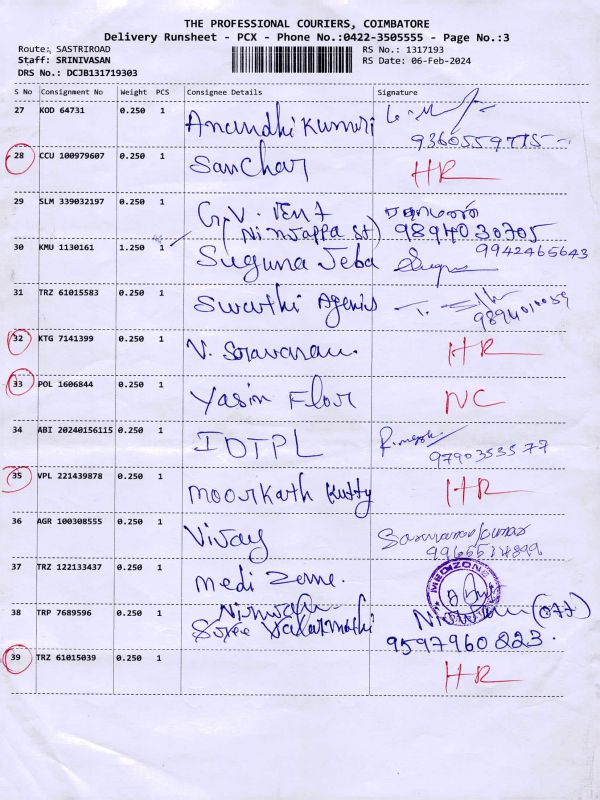 THE PROFESSIONAL COURIERS, COIMBATORE
Delivery Runsheet - PCX - Phone No.:0422-3505555 - Page No.:3
Route: SASTRIROAD
RS No.: 1317193
Staff: SRINIVASAN
RS Date: 06-Feb-2024
DRS No.: DCJB131719303
S No Consignment No Weight PCS Consignee Details Signature
27 KOD 64731 0.250 1 Anandhi Kumari
9360559775
28 CCU 100979607 0.250 1 Sanchar HR
29 SLM 339032197 0.250 1 G.V. Vent
(Ninjappa St) 9894030705
30 KMU 1130161 1.250 1 Suguna Jeba 9942465643
31 TRZ 61015583 0.250 1 Swathi Agenis
9894010059
32 KTG 7141399 0.250 1 V. Sravanan. HR
33 POL 1606844 0.250 1 Yasin Flour NC
34 ABI 20240156115 0.250 1 IDTPL
9790353577
35 VPL 221439878 0.250 1 Moorkath Kutty HR
36 AGR 100308555 0.250 1 Vijay Saravanakumar
37 TRZ 122133437 0.250 1 Medi Zone. MEDIZONE
38 TRP 7689596 0.250 1
9597960223.
39 TRZ 61015039 0.250 1 HR